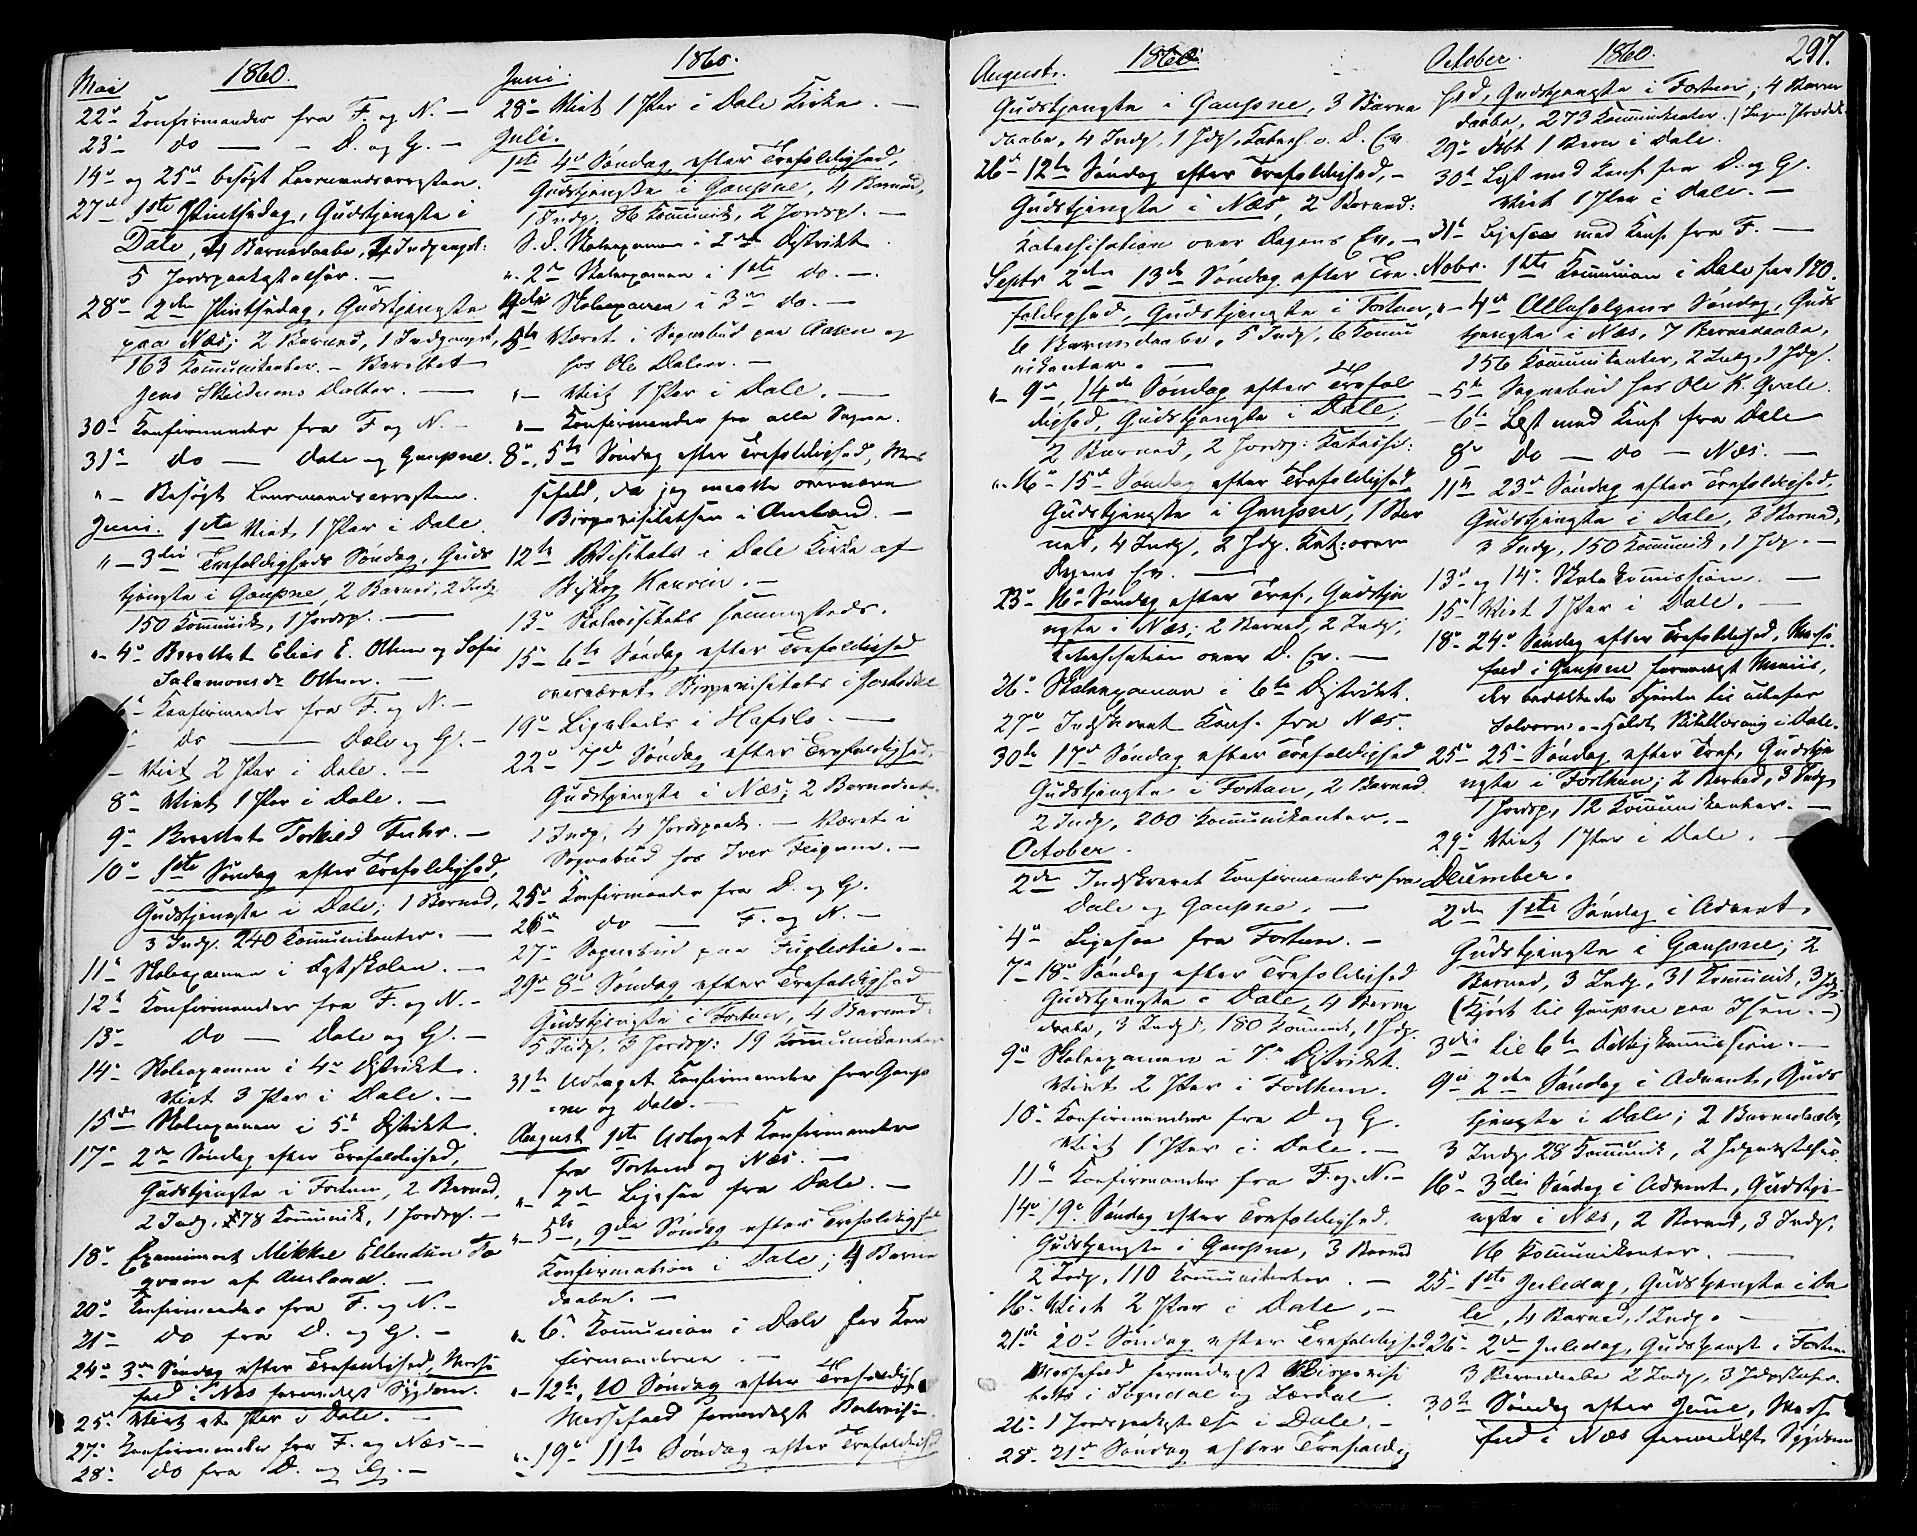 Mai 1860.
22de Konfirmander fra F. og N. —
23de do — — D. og G. —
14de og 25de besøgt Lensmandsarresten.
27de 1ste Pintsedag, Gudstjeneste i
Dale, 4 Barnedaabe, 4 Indgangsk:
5 Jordspaakastelser. —
28de 2den Pintsedag, Gudstjeneste
paa Næs; 2 Barned, 1 Indgangsk,
163 Kommunikanter. — Berettet
Jens Skildums Datter. —
30te Konfirmander fra F og N. —
31te do — Dale og Gaupne.
"— Besøgt Lensmandsarresten.
Juni. 1ste Viet 1 Par i Dale.
"— 3die Trefoldigheds Søndag, Guds
tjeneste i Gaupne, 2 Barned, 2 Indg
150 Kommunik, 1 Jordsp. —
"— 4de Berettet Elias E. Otten og Sofie
Salamonsdr Otten. —
6te Konfirmander fra F. og N. —
do — Dale og G. —
— Viet 2 Par i Dale. —
8de Viet 1 Par i Dale. —
9de Berettet Torkild —
10de 1ste Søndag efter Trefoldighed,
Gudstjeneste i Dale; 1 Barned,
3 Indg. 240 Kommunikanter. —
11te Skoleexamen i Fastskolen. —
12te Konfirmander fra F. og N. —
13de do — Dale og G. —
14de Skoleexamen i 4de Distrikt.
Viet 3 Par i Dale. —
15de Skoleexamen i 5te Distrikt.
17de 2den Søndag efter Trefoldighed,
Gudstjeneste i Fortun, 2 Barned,
2 Indg, 178 Kommunik, 1 Jordsp. —
18de Examineret Mikkel Ellendsen
af Aurland. —
20de Konfirmander fra F. og N. —
21de do fra D. og G. —
24de 3die Søndag efter Trefoldighed, Messe
fald i Næs formedelst Sygdom.
25de Viet et Par i Dale. —
27de Konfirmander fra F. og Næs —
28de do fra D. og G. —
Juni: 1860.
28de Viet 1 Par i Dale Kirke. —
Juli.
1ste 4de Søndag efter Trefoldighed,
Gudstjeneste i Gaupne, 4 Barned,
1 Indg, 86 Kommunik, 2 Jordsp. —
S.d. Skoleexamen i 2det Distrikt
"— 2de Skoleexamen i 1ste do. —
Skoleexamen i 3die do. —
5te Været i Sognebud paa Aasen og
hos Ole Dalen. —
"— Viet 1 Par i Dale. —
"— Konfirmander fra alle Sogne.
8de, 5te Søndag efter Trefoldighed, Mes
sefald, da jeg maatte overvære
Bispevisitatsen i Aurland. —
12te Visitats i Dale Kirke af
Biskop Kaurin. —
13de Skolevisitats sammesteds.
15de 6te Søndag efter Trefoldighed
overværet Bispevisitats i Jostedal
19de i Hafslo. —
22de 7de Søndag efter Trefoldighed,
Gudstjeneste i Næs; 2 Barnedaab,
1 Indg, 4 Jordspaak. — Været i
Sognebud hos Iver Feigum. —
25de Konfirmander fra D. og G.
26de do — F. og N. —
27de Sognebud paa Fuglestie. —
29de 8de Søndag efter Trefoldighed
Gudstjeneste i Fortun, 4 Barned:
5 Indg, 3 Jordsp: 19 Kommunikanter
31te Udtaget Konfirmander fra Gaup
ne og Dale. —
August 1ste Udtaget Konfirmander
fra Fortun og Næs. —
"— 2den fra Dale. —
"— 5te, 9de Søndag efter Trefoldighed
Konfirmation i Dale; 4 Barne
daabe. —
"— 6te Kommunion i Dale for Kon
firmanderne. —
"— 12te, 10 Søndag efter Trefoldigh
Messefald formedelst
"— 19de 11te Søndag efter Trefoldighed,
August. 1860.
Gudstjeneste i Gaupne, 3 Barne
daabe, 4 Indg, 1 Jdp, Katech o. D. Ev.
26de 12te Søndag efter Trefoldighed, —
Gudstjeneste i Næs, 2 Barned:
Katechisation over Dagens Ev. —
Septr 2den 13de Søndag efter Tre
foldighed, Gudstjeneste i Fortun,
6 Barnedaabe, 5 Indg, 6 Kommu
nikanter. —
"— 9de, 14de Søndag efter Trefol
dighed, Gudstjeneste i Dale,
2 Barned, 2 Jordsp: Katechi:
"— 16de 15de Søndag efter Trefoldighed
Gudstjeneste i Gaupne, 1 Bar
ned, 4 Indg, 2 Jdp. Kat: over
Dagens Ev. —
23de 16de Søndag efter Tref, Gudstje
neste i Næs; 2 Barned, 2 Indg;
Katechisation over D. Ev. —
26de Skoleexamen i 6te Distrikt.
27de Indskrevet Konf. fra Næs.
30te 17de Søndag efter Trefoldighed
Gudstjeneste i Fortun, 2 Barned
2 Indg, 200 Kommunikanter. —
October.
2den Indskrevet Konfirmander fra
Dale og Gaupne. —
4de fra Fortun. —
7de 18de Søndag efter Trefoldighed
Gudstjeneste i Dale, 4 Barne
daabe, 3 Indg, 180 Kommunik, 1 Jdp.
9de Skoleexamen i 7de Distrikt.
Viet 2 Par i Forthun.
10de Konfirmander fra D og G.
Viet 1 Par i Dale. —
11te Konfirmander fra F. og N. —
14de 19de Søndag efter Trefoldighed,
Gudstjeneste i Gaupne, 3 Barned
2 Indg, 110 Kommunikanter. —
16de Viet 2 Par i Dale. —
21de 20de Søndag efter Trefoldighed
Messefald formedelst Bispevisi
tats i Sogndal og Lærdal.
26de 1 Jordspaakastelse i Dale. —
28de 21de Søndag efter Trefoldig
October. 1860. 297.
hed, Gudstjeneste i Fortun, 4 Barne
daabe, 273 Kommunikanter.
29de Døbt 1 Barn i Dale.
30te Læst med Konf. fra D. og G.
Viet 1 Par i Dale. —
31te med Konf. fra F. —
Novbr. 1ste Kommunion i Dale for 180.
"— 4de Allehelgens Søndag, Guds
tjeneste i Næs, 7 Barnedaabe,
156 Kommunikanter, 2 Indg, 1 Jdp.
— 5te Sognebud hos Ole K. Qvale.
— 6te Læst med Konf fra Dale
8de do — do — Næs. —
11te 23de Søndag efter Trefoldighed,
Gudstjeneste i Dale, 3 Barned,
3 Indg, 150 Kommunik, 1 Jdp. —
13de og 14de Skolekommission. —
15de Viet 1 Par i Dale. —
18de 24de Søndag efter Trefoldighed, Messe
fald i Gaupne formedelst Meniis,
der udesfor
Solvorn. — Holdt Bibellæsning i Dale.
25de 25de Søndag efter Tref, Gudstje
neste i Forthun; 2 Barned, 3 Indg,
1 Jordsp, 12 Kommunikanter. —
29de Viet 1 Par i Dale. —
December.
2den 1ste Søndag i Advent,
Gudstjeneste i Gaupne; 2
Barned, 3 Indg, 31 Kommunik, 3 Jdp.
(Kjørt til Gaupne paa Isen. —)
3die til 6te —
9de 2den Søndag i Advent, Guds
tjeneste i Dale; 2 Barnedaabe,
3 Indg 28 Kommunik, 2 Jdpaakastelser.
16de 3die Søndag i Advent, Gudstje
neste i Næs, 2 Barned, 3 Indg,
16 Kommunikanter. —
25de 1ste Juledag, Gudstjeneste i Da
le, 4 Barned, 1 Indg. —
26de 2den Juledag, Gudstjenest i Fortun
3 Barnedaabe 2 Indg, 3 Jdpkastelser.
30te Søndag efter Juul, Messe
fald i Næs formedelst Sygdom